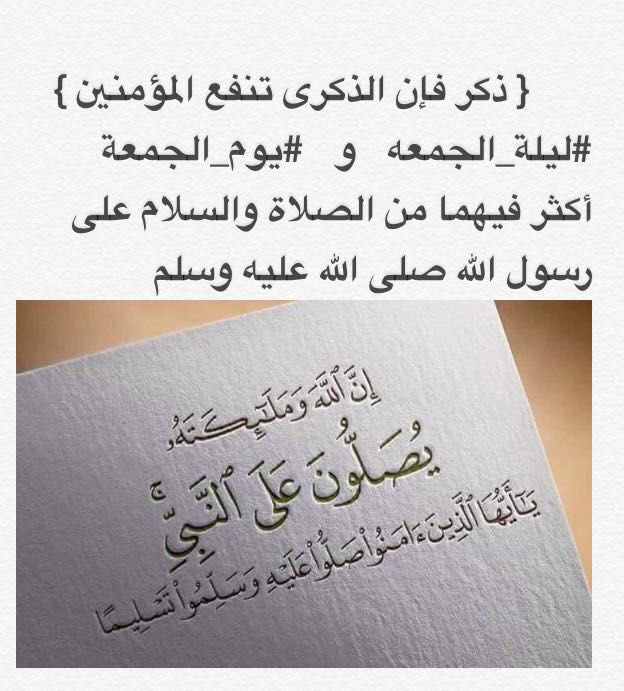 { ذكر فإن الذكرى تنفع المؤمنين }
#ليلة_الجمعه و #يوم_الجمعة
أكثر فيهما من الصلاة والسلام على
رسول الله صلى الله عليه وسلم
إِنَّ ٱللَّهَ وَمَلَٰٓئِكَتَهُۥ
يُصَلُّونَ عَلَى ٱلنَّبِيِّۚ
يَٰٓأَيُّهَا ٱلَّذِينَ ءَامَنُوا۟ صَلُّوا۟ عَلَيْهِ وَسَلِّمُوا۟ تَسْلِيمًا